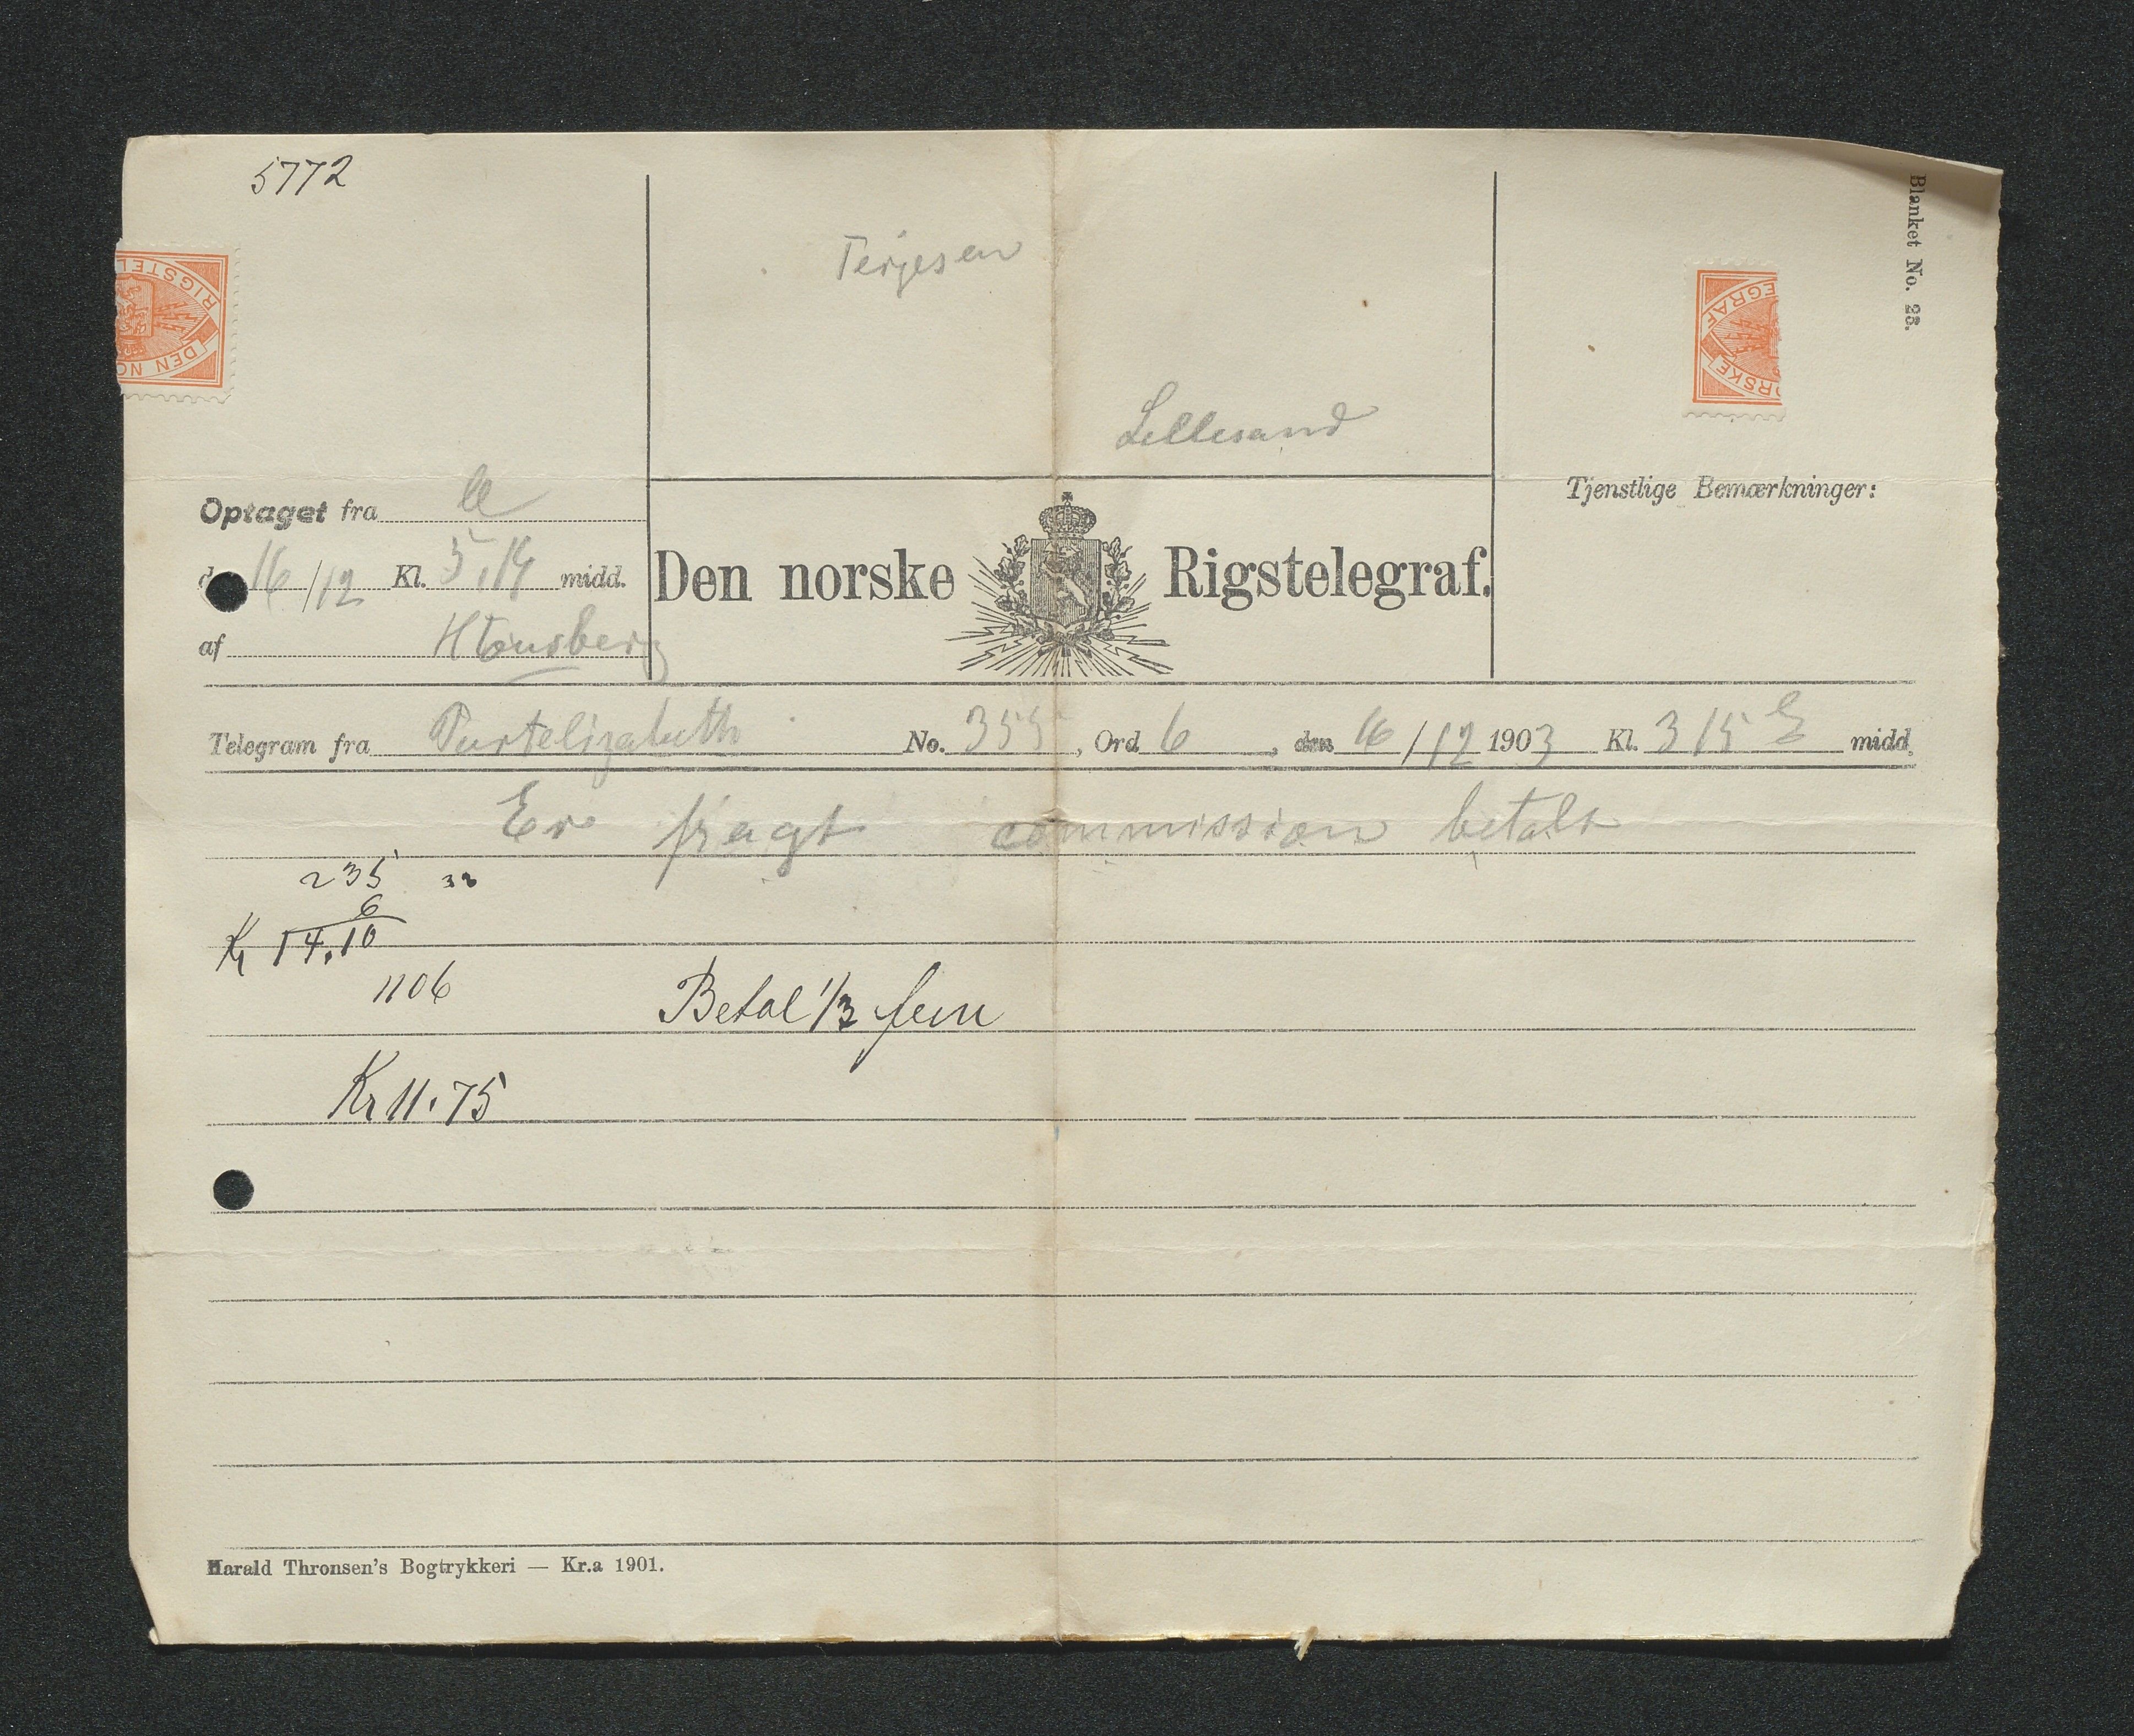 5772
Blanket No. 23.
RIGSTEL
DEN NO
EGRAF
ORSKE
Terjesen
Lillesand
Optaget fra
Tjenstlige Bemærkninger:
d 16/12 Kl. 5,14 midd.
Den norske Rigstelegraf.
af H Tønsberg
Telegram fra Portelizabeth No. 355, Ord 6, den 16/12 1903 Kl. 3 15 E midd.
Er fragt commission betalt
235 33
6
Kr 14.10
1106
Betal 1/3 frem
Kr 11.75
Harald Thronsen's Bogtrykkeri — Kr.a 1901.